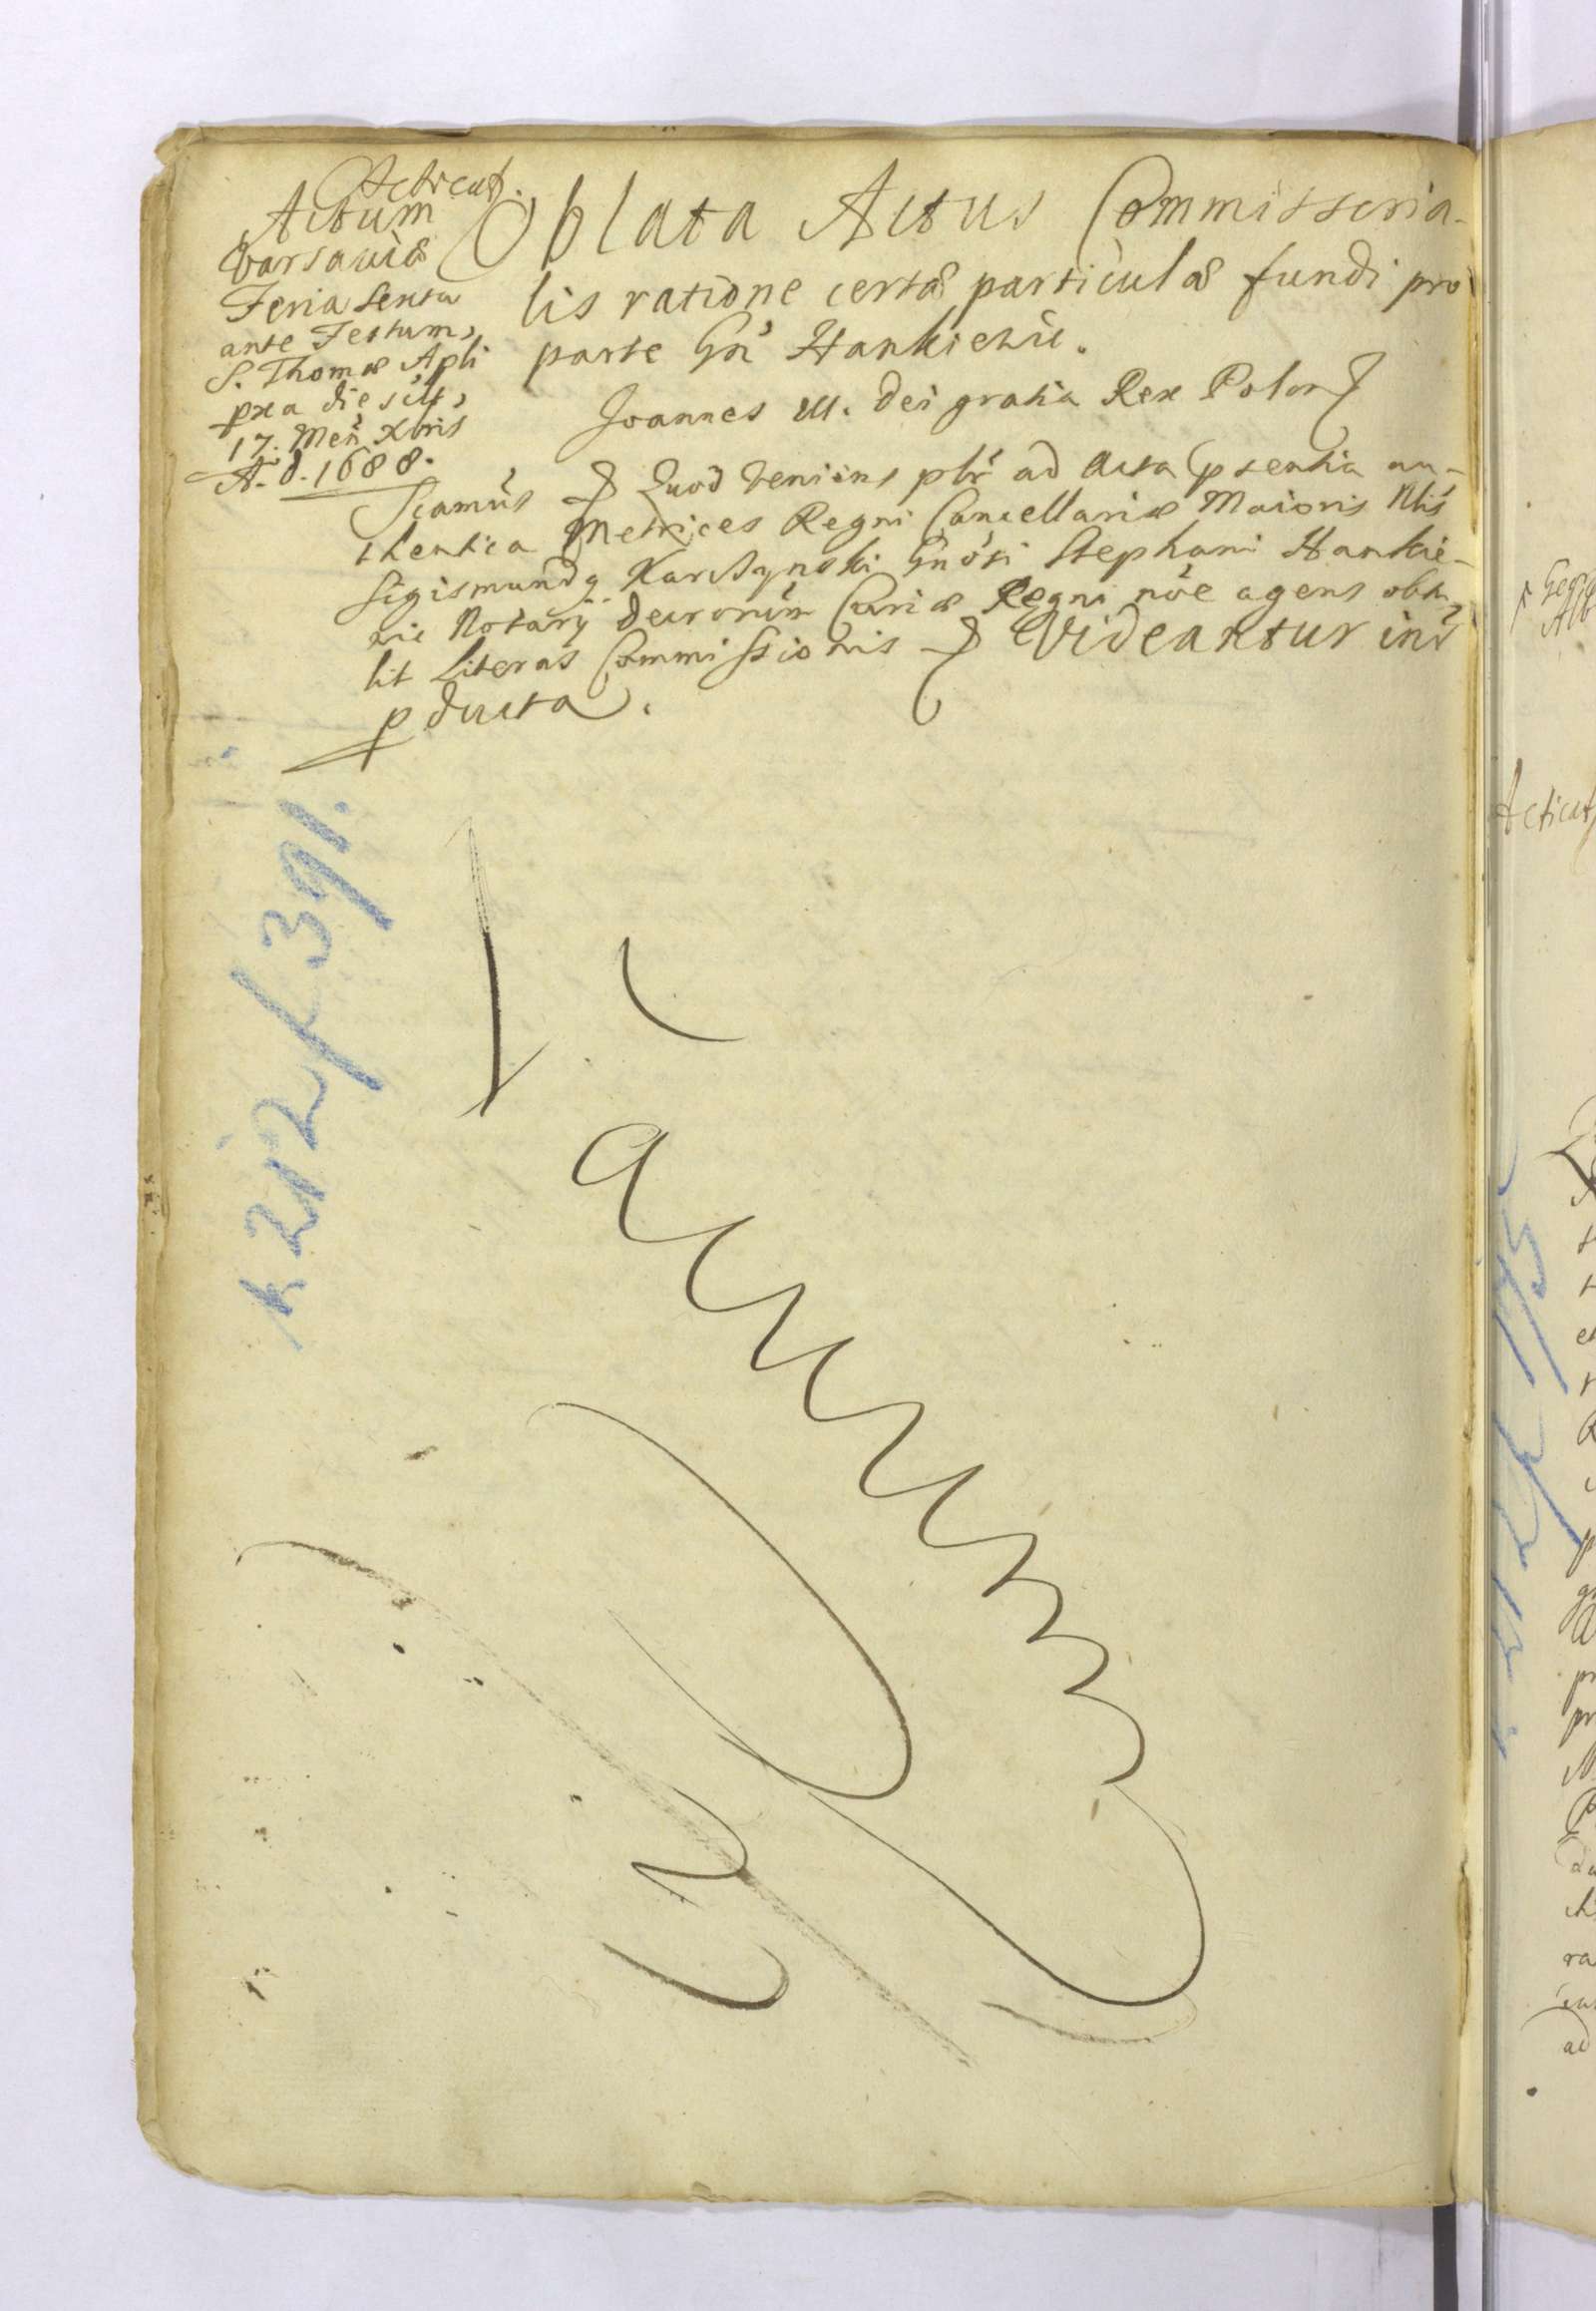 Acticat.
Actum
Varsaviæ
Feria Sexta
ante Festum
S. Thomæ Apli
pxa die scilt,
17. Men Xbris
A. d. 1688.
Oblata Actus Commisseria-
lis ratione certæ particulæ fundi pro
parte Gn Hankiewic.
Joannes III. Dei gratia Rex Polon
Scamus Quod veniens plr ad Acta psentia au-
thentica Metrices Regni Cancellariæ Maioris Nlis
Sigismundg Karczynski Gnosi Stephani Hankie-
wic Notarÿ Decrorum Curiæ Regni noe agens obtu-
lit Literas Commissionis Videantur in
pducta.
k 212/391.
Vacuum
Acticat